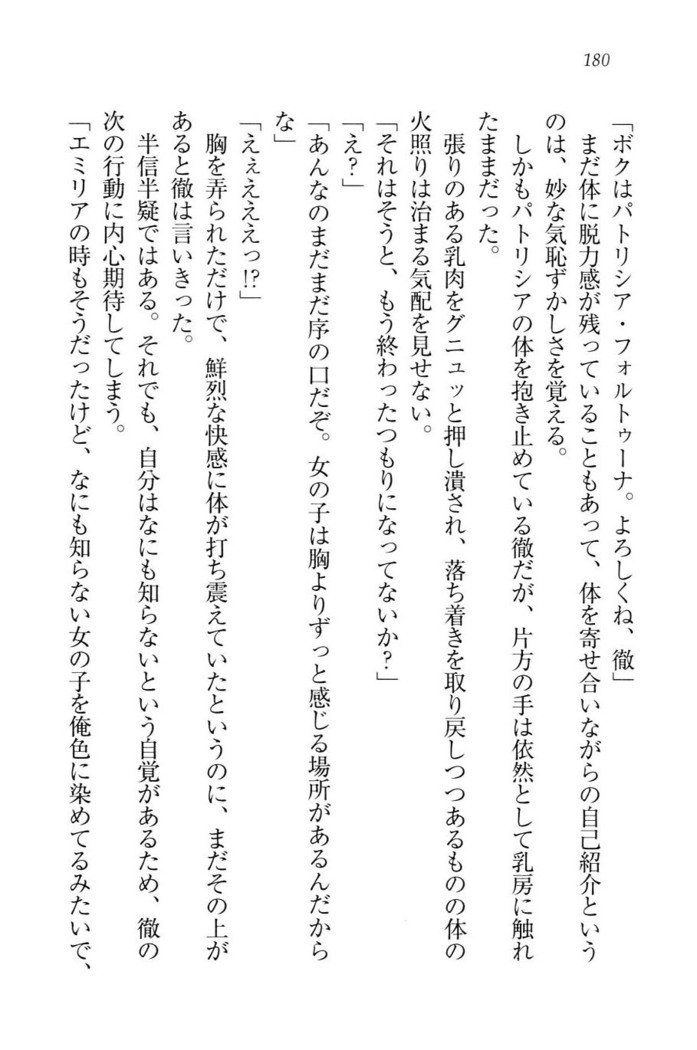 180
「ボクはパトリシア・フォルトゥーナ。よろしくね、徹」
まだ体に脱力感が残っていることもあって、体を寄せ合いながらの自己紹介という
のは、妙な気恥ずかしさを覚える。
しかもパトリシアの体を抱き止めている徹だが、片方の手は依然として乳房に触れ
たままだった。
張りのある乳肉をグニュッと押し潰され、落ち着きを取り戻しつつあるものの体の
火照りは治まる気配を見せない。
「それはそうと、もう終わったつもりになってないか?」
「え?」
「あんなのまだまだ序の口だぞ。女の子は胸よりずっと感じる場所があるんだから
な」
「えぇえええっ!?」
胸を弄られただけで、鮮烈な快感に体が打ち震えていたというのに、まだその上が
あると徹は言いきった。
半信半疑ではある。それでも、自分はなにも知らないという自覚があるため、徹の
次の行動に内心期待してしまう。
「エミリアの時もそうだったけど、なにも知らない女の子を俺色に染めてるみたいで、